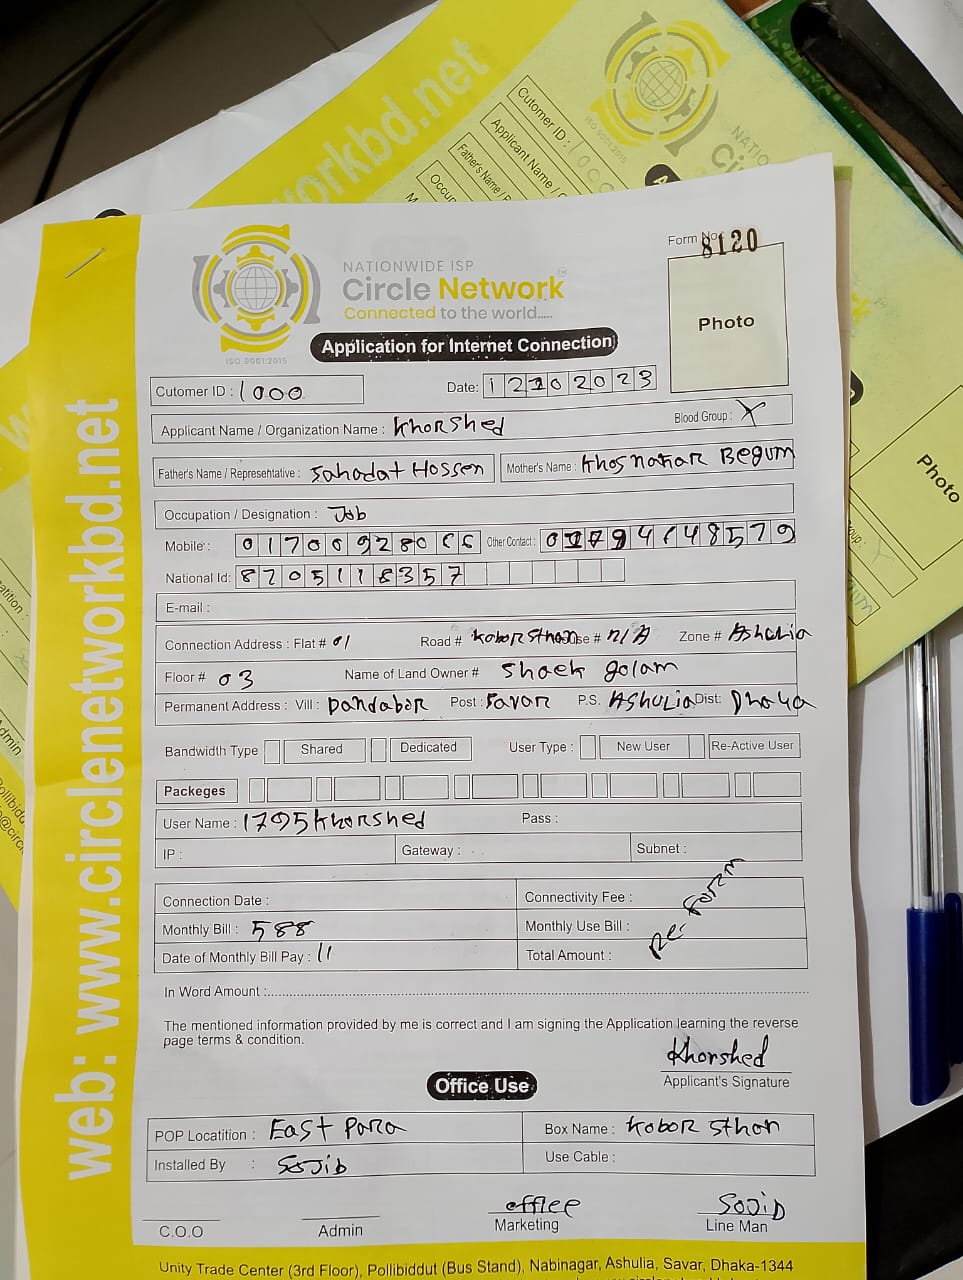 workbd.net
Cutomer ID : 1000
Applicant Name /
Father's Name /
Occup
NATIO
Photo
Form No: 8120
NATIONWIDE ISP
Circle Network
Connected to the world.....
ISO 9001:2015
Photo
Application for Internet Connection
Cutomer ID : 1000 Date: 12102023
Applicant Name / Organization Name : Khorshed Blood Group : X
Father's Name / Representative : Sahadat Hossen Mother's Name : Khosnahar Begum
Occupation / Designation : Job
Mobile : Other Contact :
National Id: 8705118357
E-mail :
Connection Address : Flat # 01 Road # Kobor Sthan House # n/A Zone # Ashulia
Floor # 03 Name of Land Owner # Shaek golam
Permanent Address : Vill : Dandabor Post : Savar P.S. Ashulia Dist: Dhaka
Bandwidth Type Shared Dedicated User Type : New User Re-Active User
Packeges
User Name : 1795Khorshed Pass :
IP : Gateway : Subnet :
Connection Date : Connectivity Fee :
Monthly Bill : 588 Monthly Use Bill :
Date of Monthly Bill Pay : 11 Total Amount :
In Word Amount :
The mentioned information provided by me is correct and I am signing the Application learning the reverse
page terms & condition.
Khorshed
Applicant's Signature
Office Use
POP Locatition : East Para Box Name : Kobor Sthon
Installed By : Sojib Use Cable :
office Sojib
C.O.O Admin Marketing Line Man
Unity Trade Center (3rd Floor), Pollibiddut (Bus Stand), Nabinagar, Ashulia, Savar, Dhaka-1344
web: www.circlenetworkbd.net